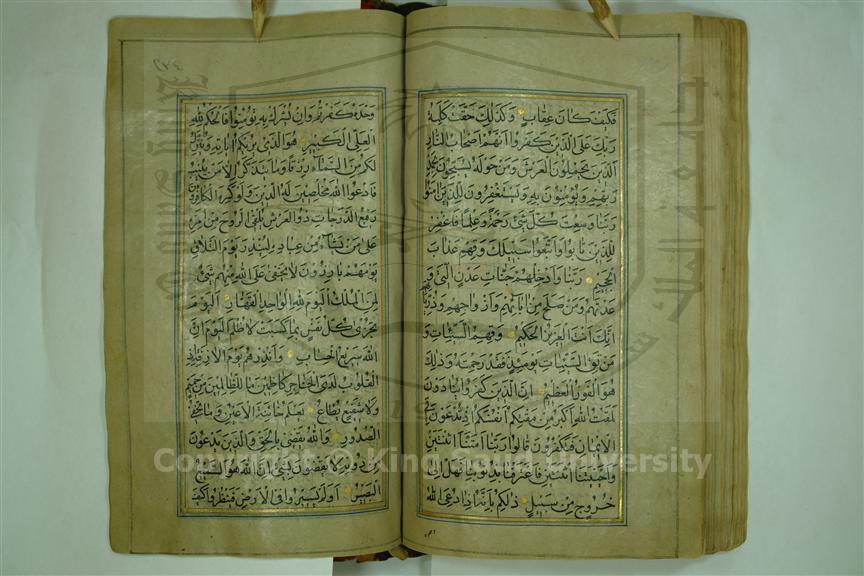 فكيف كان عقاب وكذلك حقت كلمة
ربك على الذين كفروا أنهم أصحاب النار
الذين يحملون العرش ومن حوله يسبحون بحمد
ربهم ويؤمنون به ويستغفرون للذين امنوا
ربنا وسعت كل شئ رحمة وعلما فاغفر
للذين تابوا واتبعوا سبيلك وقهم عذاب
الجحيم ربنا وادخلهم جنات عدن التي و
عدتهم ومن صلح من ابائهم وازواجهم وذرياتهم
انك انت العزيز الحكيم وقهم السيئات و
من تق السيئات يومئذ فقد رحمته وذلك
هو الفوز العظيم ان الذين كفروا ينادون
لمقت الله اكبر من مقتكم انفسكم اذ تدعون الى
الايمان فتكفرون قالوا ربنا امتنا اثنتين
واحييتنا اثنتين فاعترفنا بذنوبنا فهل الى
خروج من سبيل ذلكم بانه اذا دعي الله
وحده كفرتم وان يشرك به تؤمنوا فالحكم لله
العلي الكبير هو الذي يريكم اياته وينزل
لكم من السماء رزقا وما يتذكر الا من ينيب
فادعوا الله مخلصين له الدين ولو كره الكافرون
رفيع الدرجات ذو العرش يلقي الروح من امره
على من يشاء من عباده لينذر يوم التلاق
يوم هم بارزون لا يخفى على الله منهم شئ
لمن الملك اليوم لله الواحد القهار اليوم
تجزى كل نفس بما كسبت لا ظلم اليوم ان
الله سريع الحساب وانذرهم يوم الازفة اذ
القلوب لدى الحناجر كاظمين ما للظالمين من حميم
ولا شفيع يطاع يعلم خائنة الاعين وما تخفي
الصدور والله يقضي بالحق والذين يدعون
من دونه لا يقضون بشئ ان الله هو السميع
البصير اولم يسيروا في الارض فينظروا كيف
Copyright © King Saud University